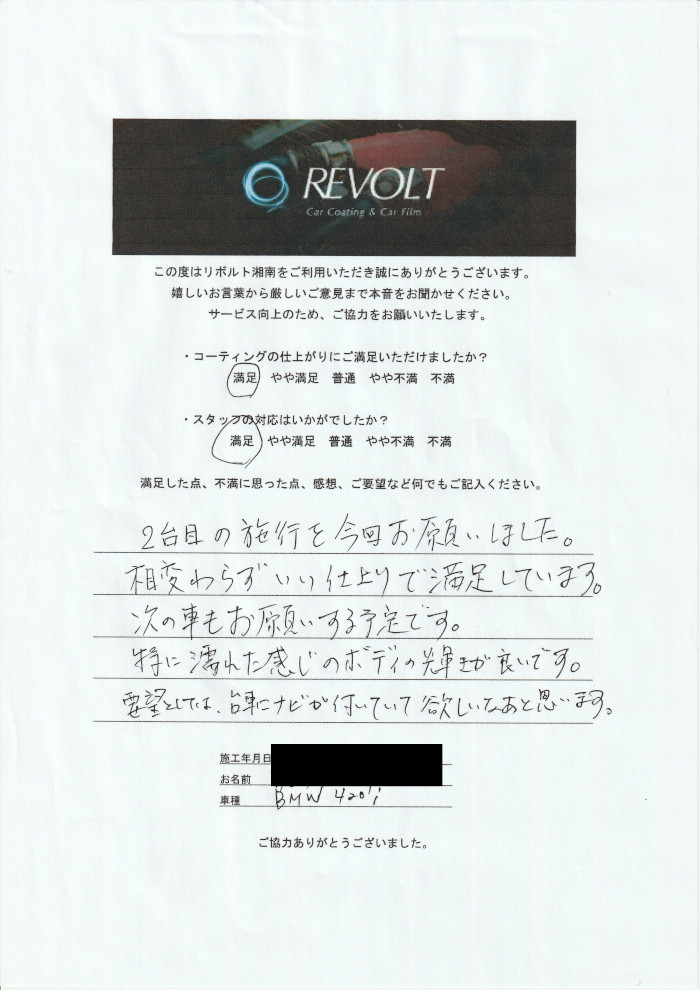 REVOLT
Car Coating & Car Film
この度はリボルト湘南をご利用いただき誠にありがとうございます。
嬉しいお言葉から厳しいご意見まで本音をお聞かせください。
サービス向上のため、ご協力をお願いいたします。
・コーティングの仕上がりにご満足いただけましたか？
満足 やや満足 普通 やや不満 不満
・スタッフの対応はいかがでしたか？
満足 やや満足 普通 やや不満 不満
満足した点、不満に思った点、感想、ご要望など何でもご記入ください。
2台目の施行を今回お願いしました。
相変わらずいい仕上りで満足しています。
次の車もお願いする予定です。
特に濡れた感じのボディの輝きが良いです。
要望としては、台車にナビが付いていて欲しいなあと思います。
施工年月日
お名前
車種 BMW 420i
ご協力ありがとうございました。